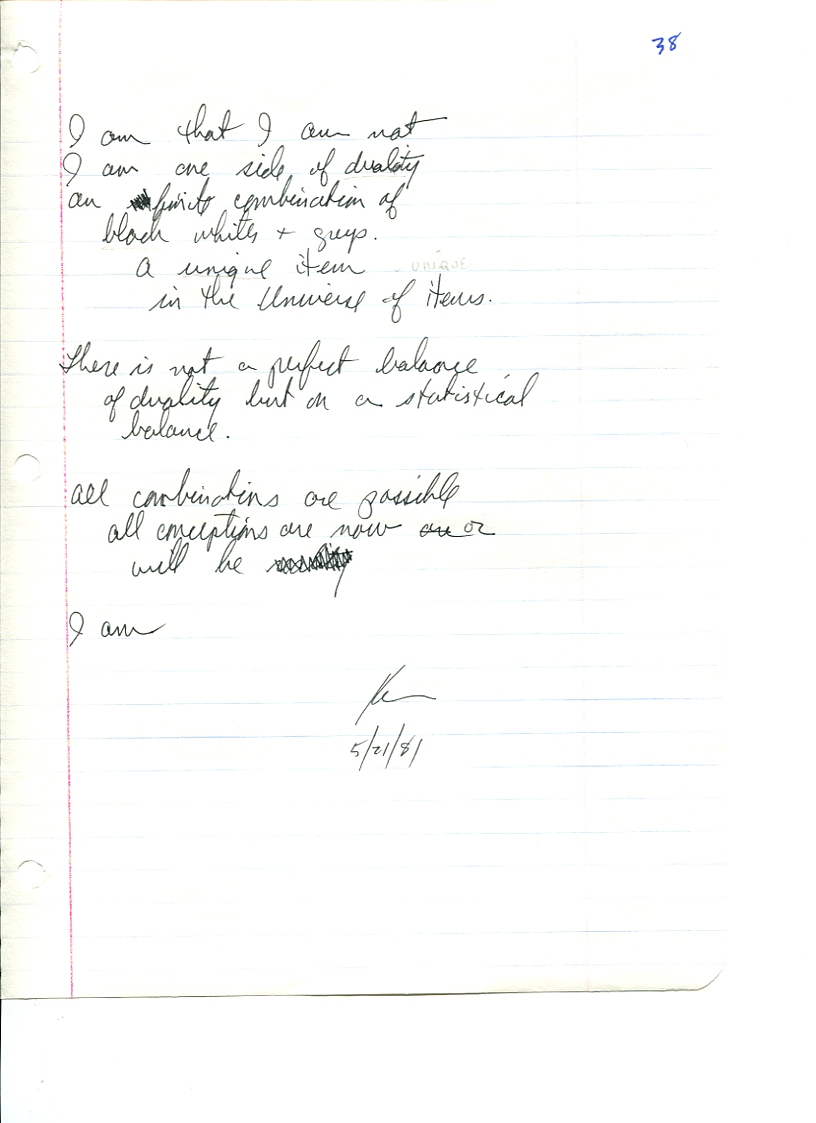 38
I am that I am not
I am one side of duality
an finite combination of
black whites + greys.
a unique item UNIQUE
in the Universe of items.
There is not a perfect balance
of duality but on a statistical
balance.
all combinations are possible
all conceptions are now or
will be
I am
Ken
5/21/81